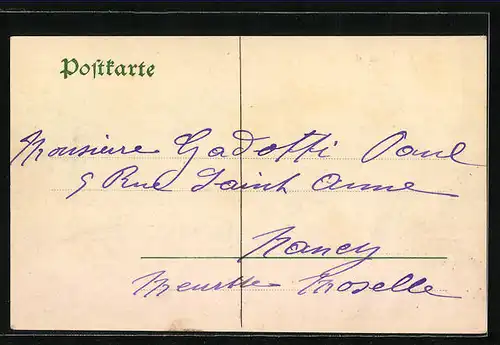 Postkarte
Monsieur Gadotti Paul
5 Rue Saint Anne
Nancy
Meurthe Moselle